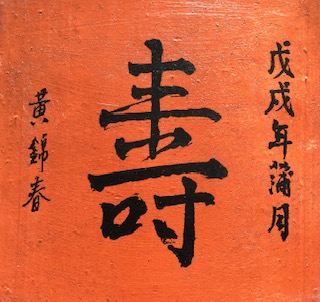 戊戌年蒲月
壽
黃錦春